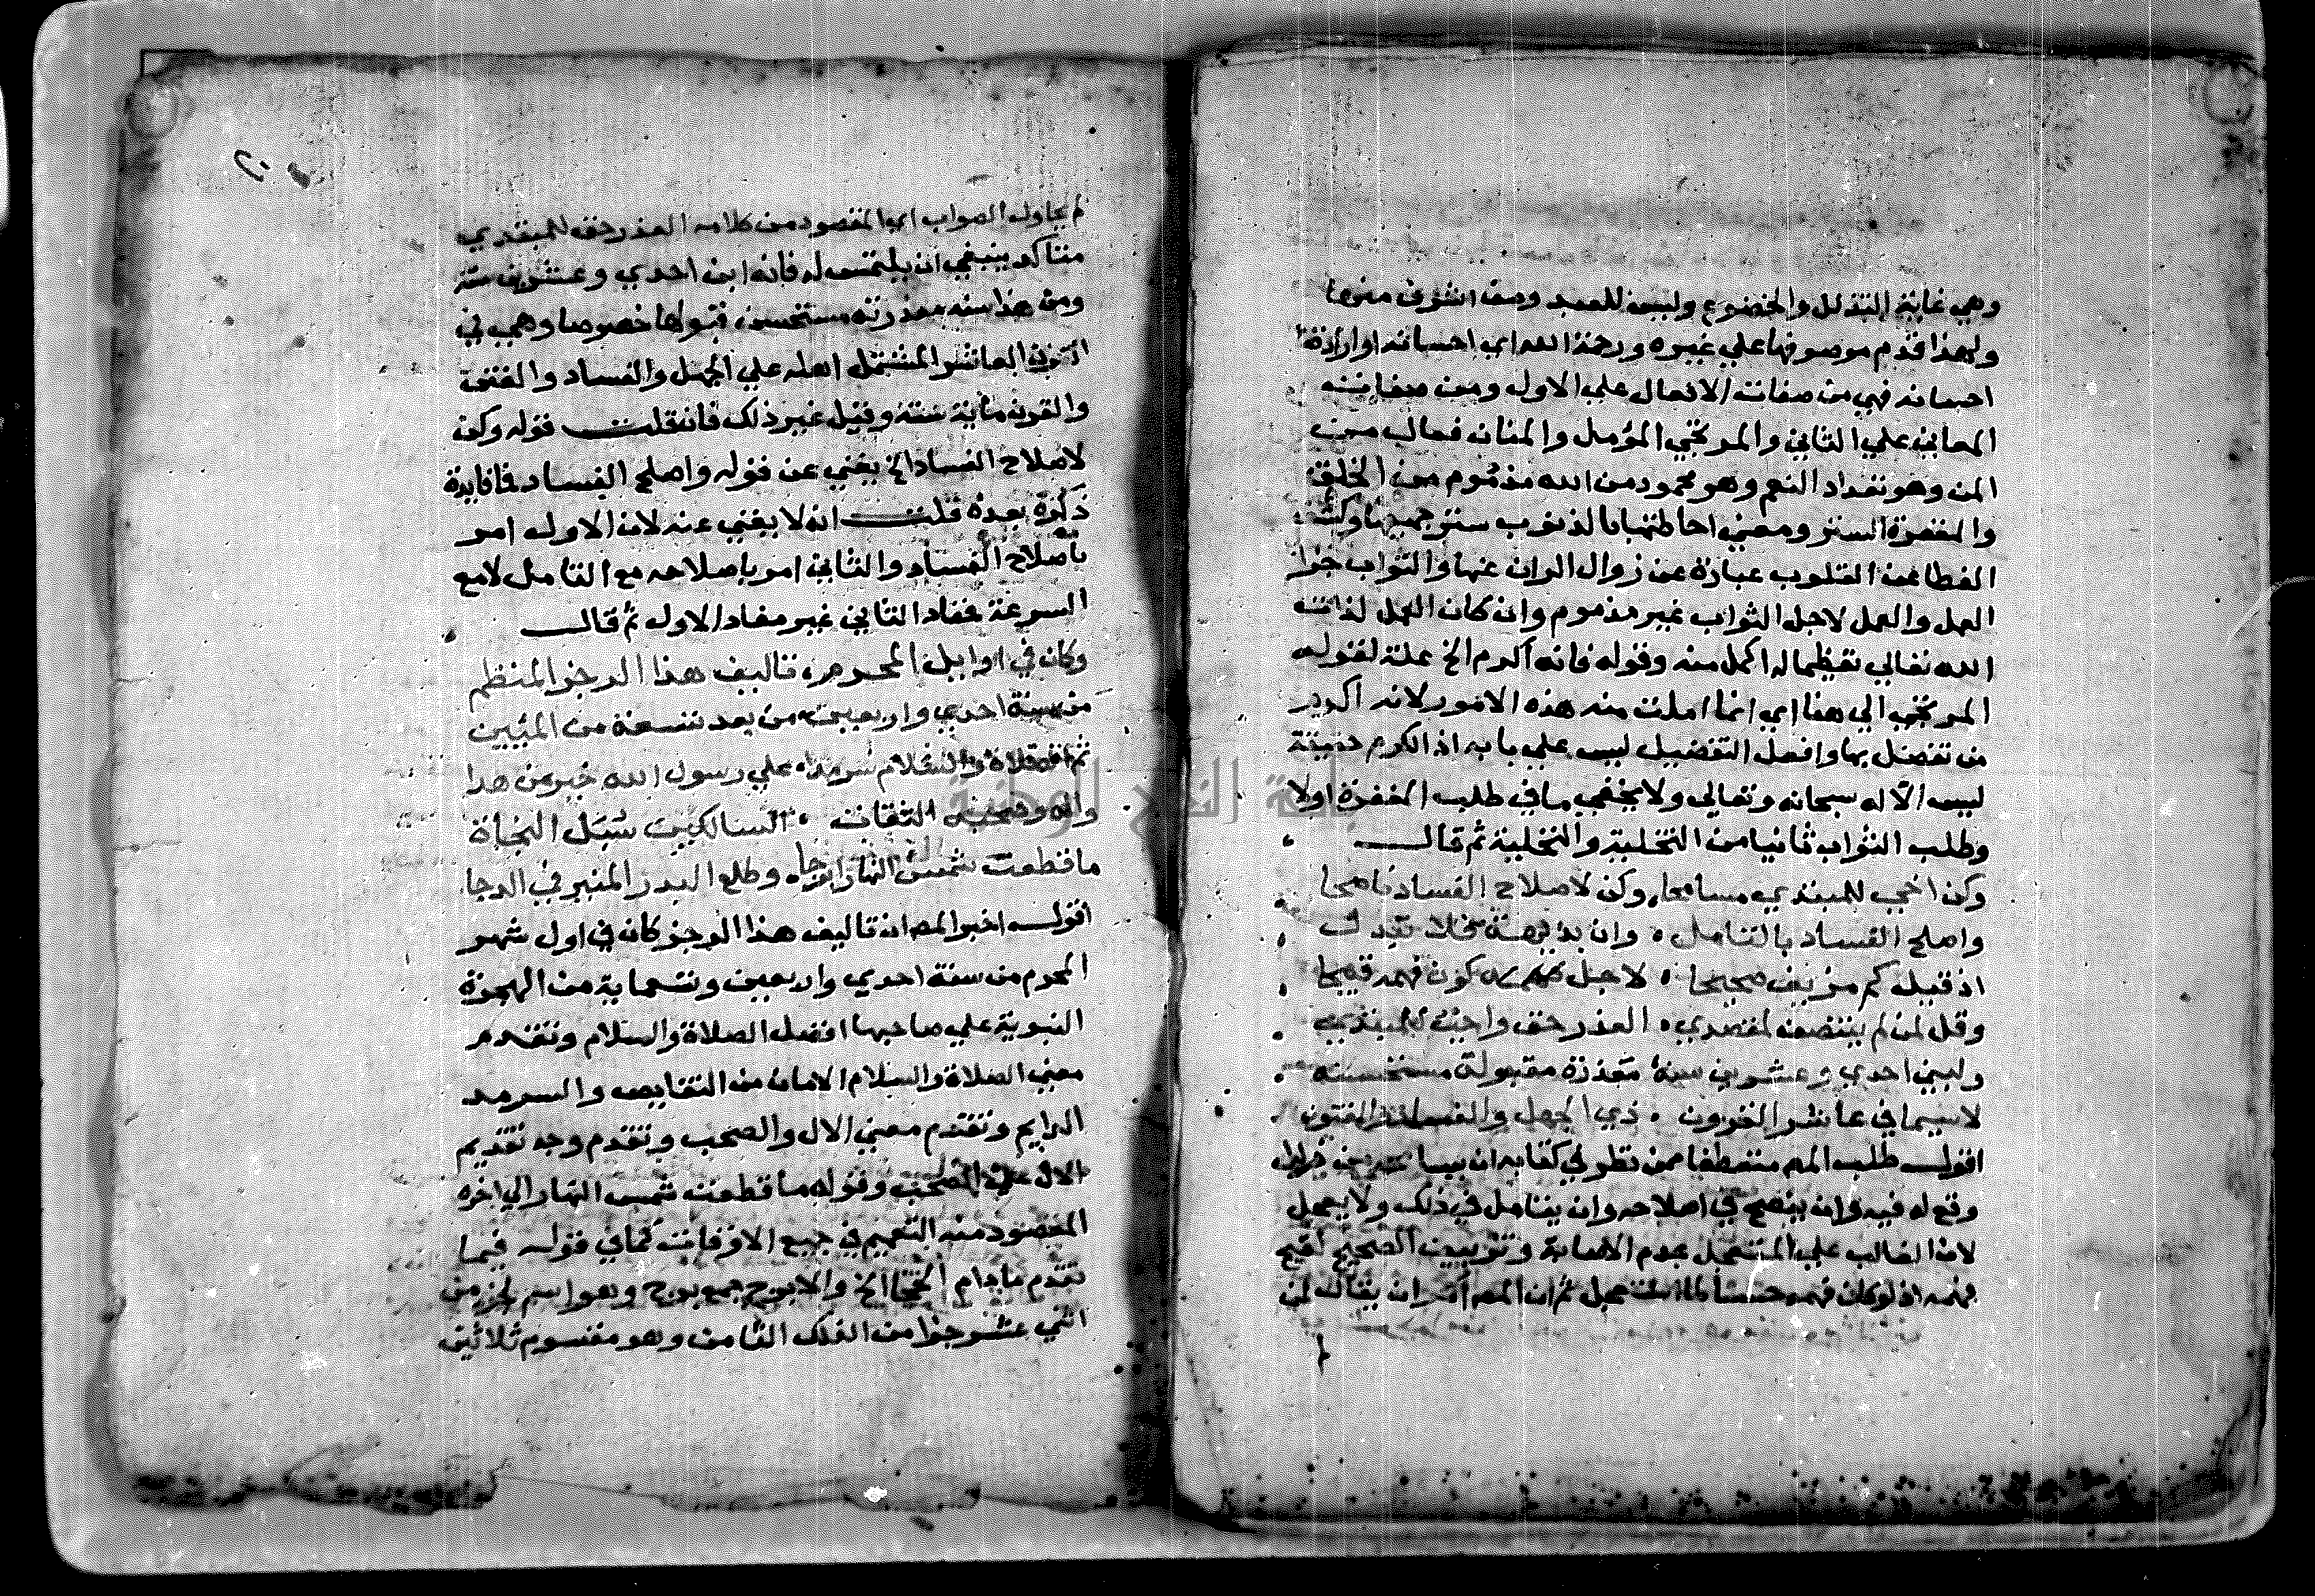 وهي غاية التذلل والخضوع وليس للعبد وصف اشرف منها
ولهذا قدم موصوفها علي غيره ورحمة الله اي احسانه او ارادة
احسانه فهي من صفات الافعال علي الاول ومن صفات
المعاني علي الثاني والمرتجي المؤمل والمنان فعال من
المن وهو تعداد النعم وهو محمود من الله مذموم من الخلق
والمغفرة الستر ومعني احاطتها بالذنوب ستر جميعها وكشف
الغطا عن القلوب عبارة عن زوال الران عنها والثواب جزا
العمل والعمل لاجل الثواب غير مذموم وان كان العمل لذات
الله تعالي تعظيما له اكمل منه وقوله فانه اكرم الخ علة لقوله
المرتجي الي هنا اي انما املت منه هذه الامور لانه اكرم
من تفضل بها وافعل التفضيل ليس علي بابه اذ الكرم حقيقة
ليس الا له سبحانه وتعالي ولا يخفي ما في طلب المغفرة اولا
وطلب الثواب ثانيا من التخلية والتحلية ثم قال
وكن اخي للمبتدي مسامحا وكن لاصلاح الفساد ناصحا
واصلح الفساد بالتامل وان بديهة فلا تبدل
اذ قيل كم مزيف صحيحا لاجل كون فهمه قبيحا
وقل لمن لم ينتصف لمقصدي العذر حق واجب للمبتدي
ولبني احدي وعشرين سنة معذرة مقبولة مستحسنة
لاسيما في عاشر القرون ذي الجهل والفساد والفتون
اقول طلب المص متعطفا ممن نظر في كتابه ان يسامحه من خلل
وقع له فيه وان ينصح في اصلاحه وان يتامل في ذلك ولا يعجل
لان الغالب علي المستعجل عدم الاصابة وتزييف الصحيح لقبح
فهمه اذ لو كان فهمه حسنا لما استعجل ثم ان المص امر ان يقال لمن
لم يحاول الصواب اي المقصود من كلامه العذر حق للمبتدي
متاكد ينبغي ان يلتمس له فانه ابن احدي وعشرين سنة
ومن هذا سنه معذرته مستحسن قبولها خصوصا وهي في
القرن العاشر المشتمل اهله علي الجهل والفساد والفتن
والقرن ماية سنة وقيل غير ذلك فان قلت قوله وكن
لاصلاح الفساد الخ يغني عن قوله واصلح الفساد فما فايدة
ذكره بعده قلت انه لا يغني عنه لان الاول امر
باصلاح الفساد والثاني امر باصلاحه مع التامل لا مع
السرعة فمفاد الثاني غير مفاد الاول ثم قال
وكان في اوايل المحرم تاليف هذا الرجز المنظم
من سنة احدي واربعين من بعد تسعة من المئين
ثم الصلاة والسلام سرمدا علي رسول الله خير من هدا
واله وصحبه الثقات السالكين سبل النجاة
ما قطعت شمس النهار ابرجا وطلع البدر المنير في الدجا
اقول اخبر المص ان تاليف هذا الرجز كان في اول شهر
المحرم من سنة احدي واربعين وتسعماية من الهجرة
النبوية علي صاحبها افضل الصلاة والسلام وتقدم
معني الصلاة والسلام الامان من النقايص والسرمد
الدايم وتقدم معني الال والصحب وتقدم وجه تقديم
الال علي الصحب وقوله ما قطعت شمس النهار الي اخره
المقصود منه التعميم في جميع الاوقات كما في قوله فيما
تقدم ما دام الحجا الخ والابرج جمع برج وهو اسم لجزء من
اثني عشر جزا من الفلك الثامن وهو مقسوم ثلاثين